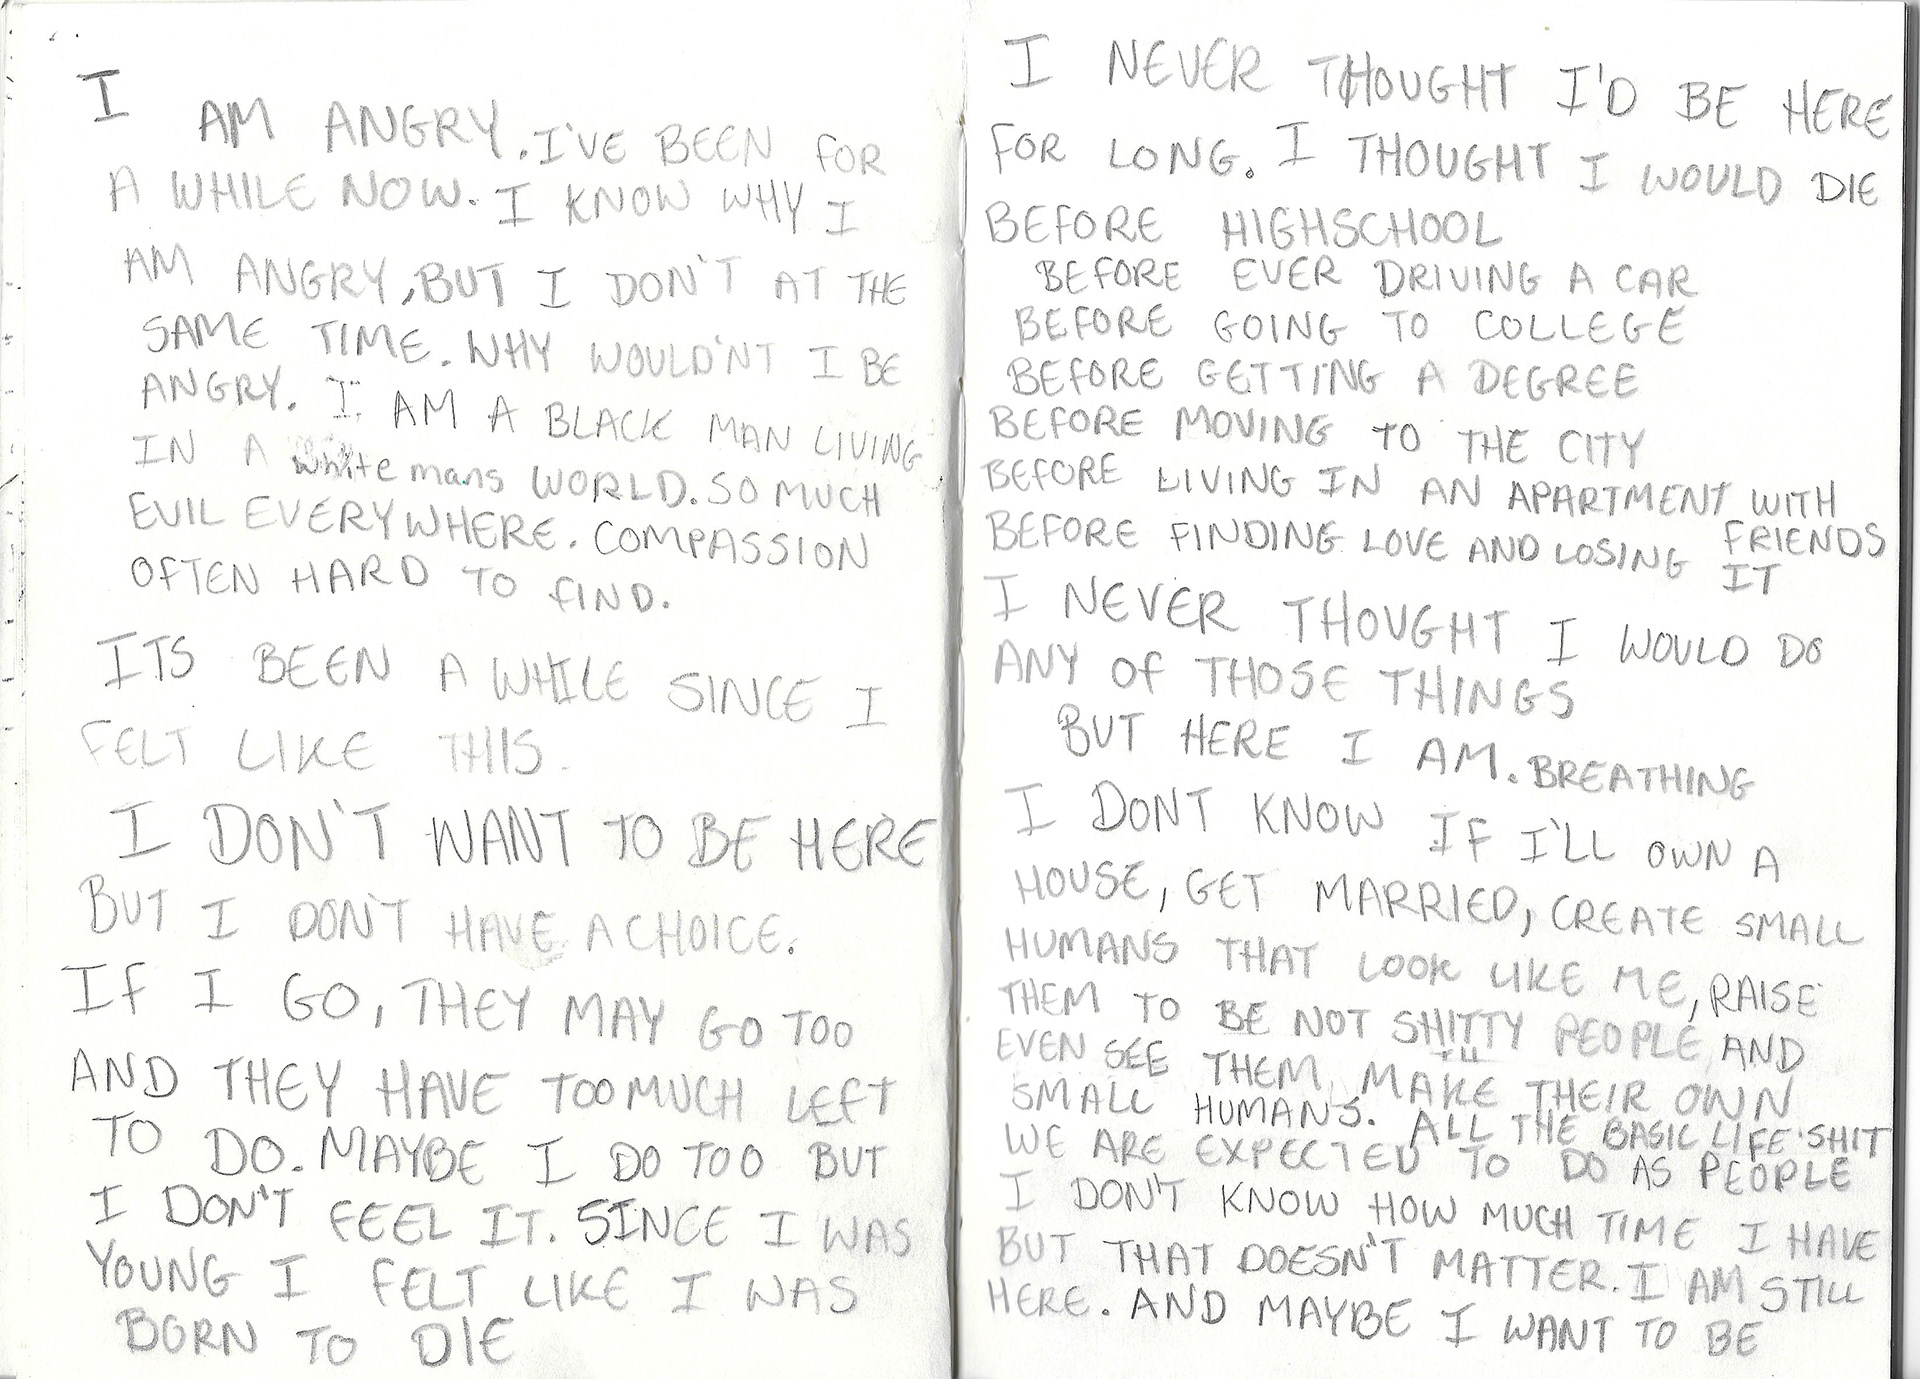 I
AM ANGRY. I'VE BEEN FOR
A WHILE NOW. I KNOW WHY I
AM ANGRY, BUT I DON'T AT THE
SAME TIME. WHY WOULD'NT I BE
ANGRY. I AM A BLACK MAN LIVING
IN A white mans WORLD. SO MUCH
EVIL EVERYWHERE. COMPASSION
OFTEN HARD TO FIND.
ITS BEEN A WHILE SINCE I
FELT LIKE THIS.
I DON'T WANT TO BE HERE
BUT I DON'T HAVE A CHOICE.
IF I GO, THEY MAY GO TOO
AND THEY HAVE TOO MUCH LEFT
TO DO. MAYBE I DO TOO BUT
I DON'T FEEL IT. SINCE I WAS
YOUNG I FELT LIKE I WAS
BORN TO DIE
I NEVER THOUGHT I'D BE HERE
FOR LONG. I THOUGHT I WOULD DIE
BEFORE HIGHSCHOOL
BEFORE EVER DRIVING A CAR
BEFORE GOING TO COLLEGE
BEFORE GETTING A DEGREE
BEFORE MOVING TO THE CITY
BEFORE LIVING IN AN APARTMENT WITH FRIENDS
BEFORE FINDING LOVE AND LOSING IT
I NEVER THOUGHT I WOULD DO
ANY OF THOSE THINGS
BUT HERE I AM. BREATHING
I DONT KNOW IF I'LL OWN A
HOUSE, GET MARRIED, CREATE SMALL
HUMANS THAT LOOK LIKE ME, RAISE
THEM TO BE NOT SHITTY PEOPLE AND
EVEN SEE THEM MAKE THEIR OWN
SMALL HUMANS. ALL THE BASIC LIFE SHIT
WE ARE EXPECTED TO DO AS PEOPLE
I DON'T KNOW HOW MUCH TIME I HAVE
BUT THAT DOESN'T MATTER. I AM STILL
HERE. AND MAYBE I WANT TO BE